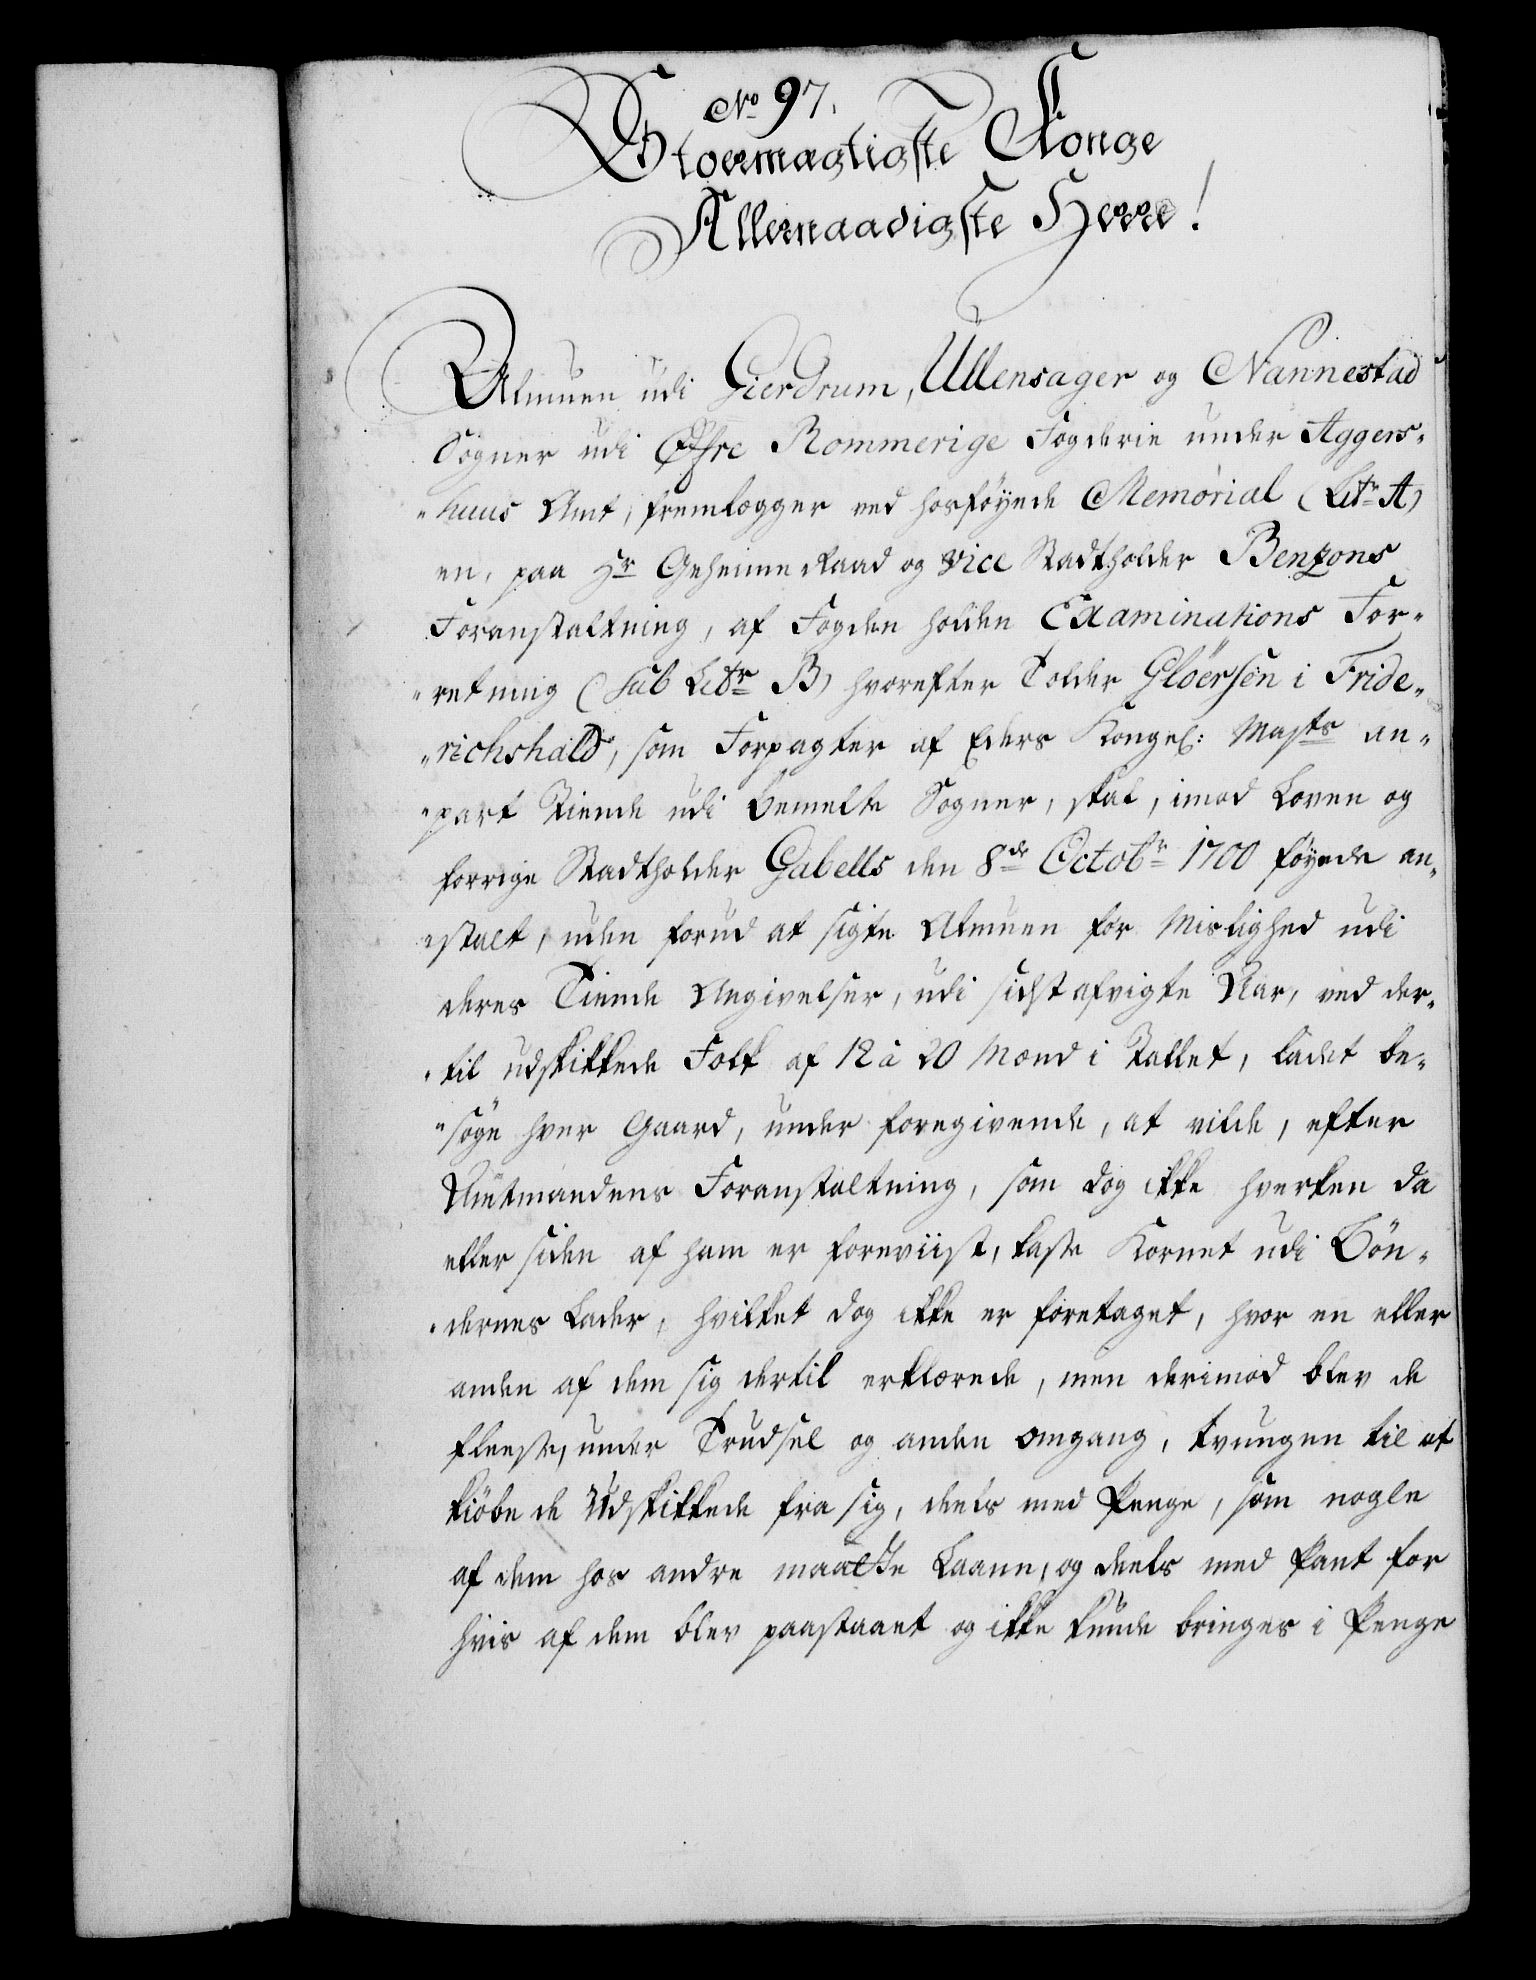 No 97.
Stoermægtigste Konge
Allernaadigste Herre!
Almuen udi Gierdrum, Ullensager og Nannestad
Sogner udi Øfre Rommerige Fogderie under Aggers-
huus Amt, fremlægger ved hosføyede Memorial (Litr A)
en, paa Hr Geheime Raad og Vice Stadtholder Benzons
Foranstaltning, af Fogden holden Examinations For-
retning (sub Litr B) hvorefter Tolder Gloersen i Fride-
richshald, som Forpagter af Eders Kongel: Mayts an-
part Tiende udi bemelte Sogner, skal, imod Loven og
forrige Stadtholder Gabells den 8de Octobr 1700 føyede an-
stalt, uden forud at sigte Almuen for Mislighed udi
deres Tiende Angivelser, udi sidst afvigte Aar, ved der-
til udskikkede Folk af 12 à 20 Mænd i Tallet, ladet be-
søge hver Gaard, under foregivende, at vilde, efter
Amtmandens Foranstaltning, som dog ikke hverken da
eller siden af ham er foreviist, kaste Kornet udi Bøn-
dernes Lader, hvilket dog ikke er foretaget, hvor en eller
anden af dem sig dertil erklærede, men derimod blev de
fleeste, under Trudsel og anden omgang, tvungen til at
kiøbe de Udskikkede fra sig, deels med Penge, som nogle
af dem hos andre maatte Laane, og deels med Pant for
hvis af dem blev paastaaet og ikke kunde bringes i Penge